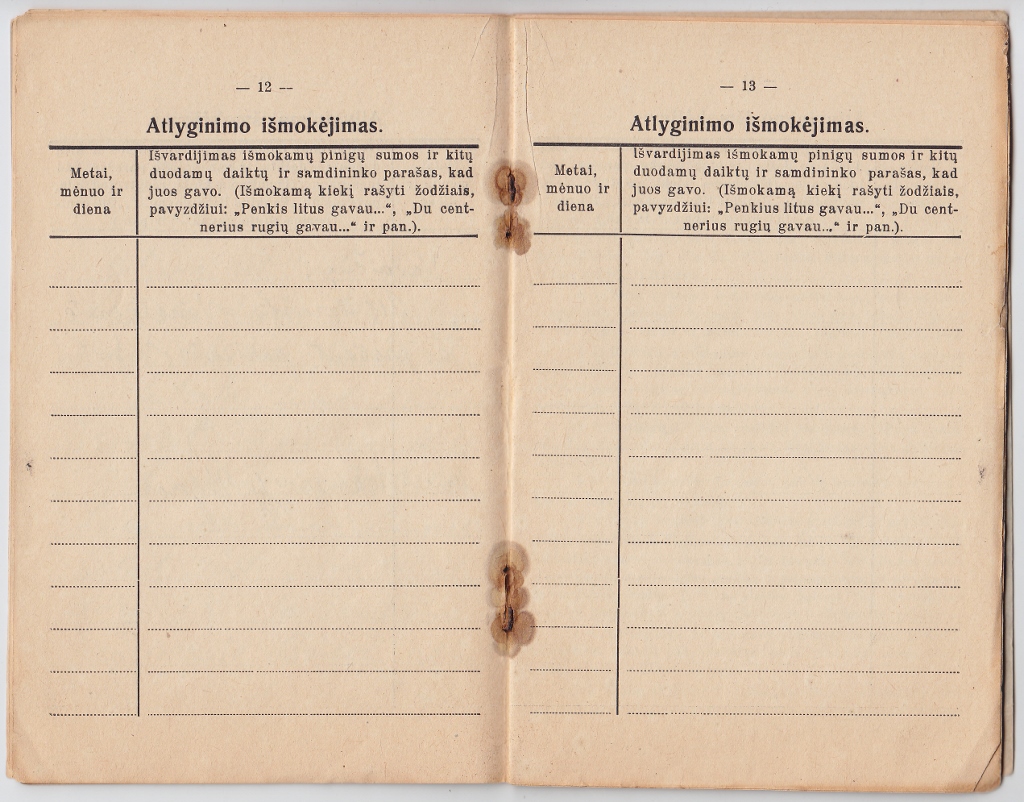 — 12 —
Atlyginimo išmokėjimas.
Metai,
mėnuo ir
diena
Išvardijimas išmokamų pinigų sumos ir kitų
duodamų daiktų ir samdininko parašas, kad
juos gavo. (Išmokamą kiekį rašyti žodžiais,
pavyzdžiui: „Penkis litus gavau...“, „Du cent-
nerius rugių gavau...“ ir pan.).
— 13 —
Atlyginimo išmokėjimas.
Metai,
mėnuo ir
diena
Išvardijimas išmokamų pinigų sumos ir kitų
duodamų daiktų ir samdininko parašas, kad
juos gavo. (Išmokamą kiekį rašyti žodžiais,
pavyzdžiui: „Penkius litus gavau...“, „Du cent-
nerius rugių gavau...“ ir pan.).